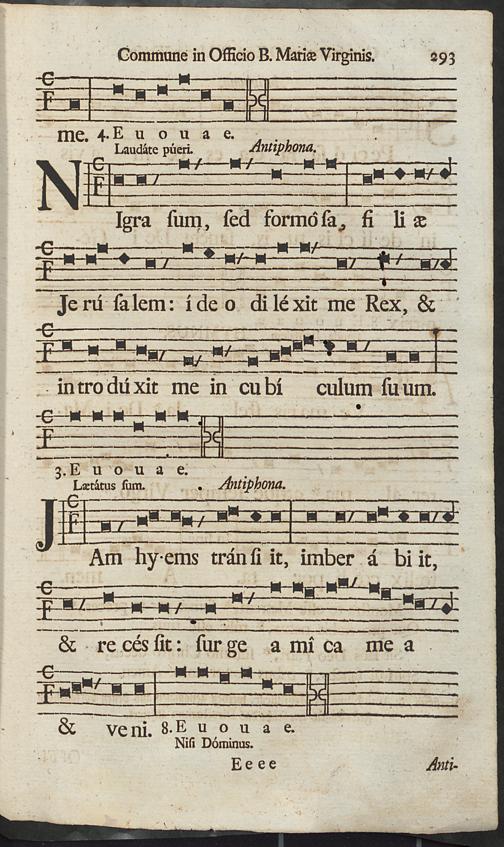 Commune in Officio B. Mariæ Virginis. 293
me. 4. E u o u a e.
Laudáte púeri. Antiphona.
NIgra ſum, ſed formôſa, fi li æ
Je rú ſa lem: í de o di lé xit me Rex, &
in tro dú xit me in cu bí culum ſu um.
3. E u o u a e.
Lætátus ſum. Antiphona.
JAm hy-ems tránſi it, imber á bi it,
& re céſ ſit: ſur ge a mî ca me a
& ve ni. 8. E u o u a e.
Niſi Dóminus.
E e e e Anti-